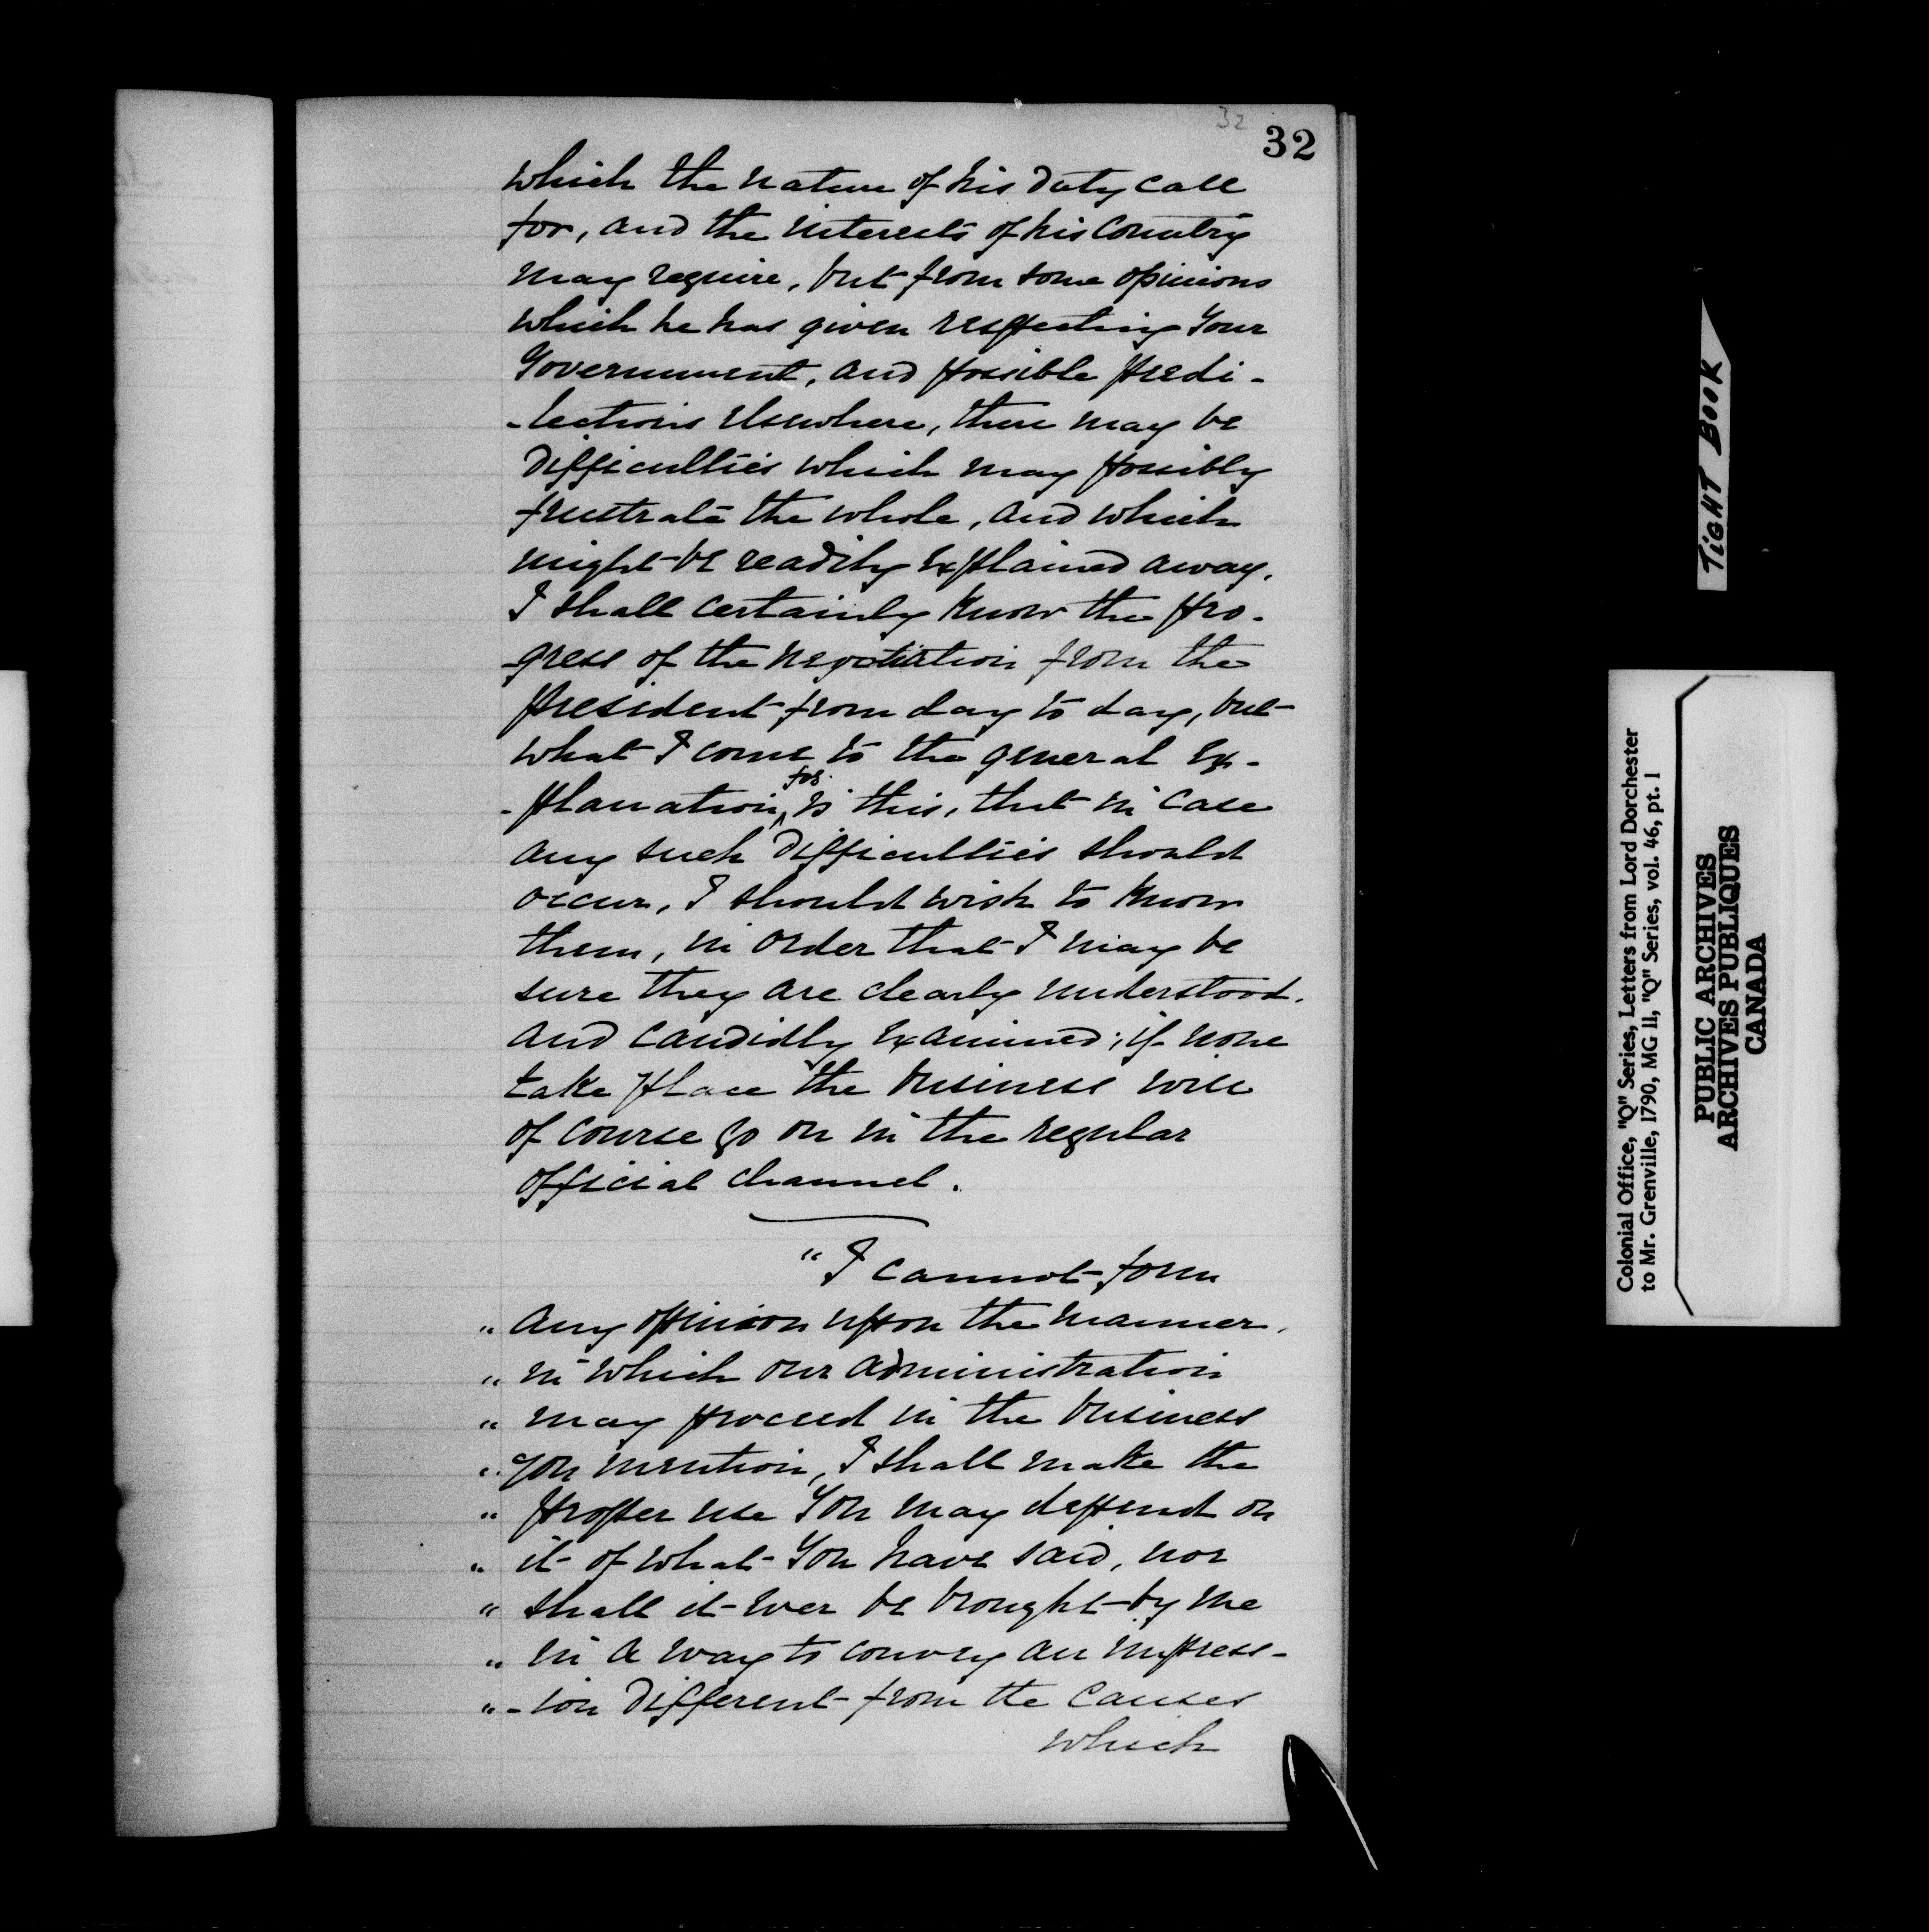 32
32
which the nature of his duty call
for, and the interests of his Country
may require, but from some opinions
which he has given respecting Your
Government, and possible predi-
-lections elsewhere, there may be
difficulties which may possibly
frustrate the whole, and which
might be readily explained away.
I shall certainly know the pro-
-gress of the negotiation from the
president from day to day, but
what I come to the general ex-
for
-planation, ^ is this, that in case
any such difficulties should
occur, I should wish to know
them, in order that I may be
sure they are clearly understood.
and candidly examined; if none
take place the business will
of course go on in the regular
official channel.
"I cannot form
" any opinion upon the manner,
" in which our administration
" may proceed in the business
" you mention, I shall make the
" proper use You may depend on
" it of what You have said, nor
" shall it ever be brought by me
" in a way to convey an impress-
" -ion different from the causes
which
TIGHT BOOK
Colonial Office, "Q" Series, Letters from Lord Dorchester
to Mr. Grenville, 1790, MG 11, "Q" Series, vol. 46, pt. 1
PUBLIC ARCHIVES
ARCHIVES PUBLIQUES
CANADA